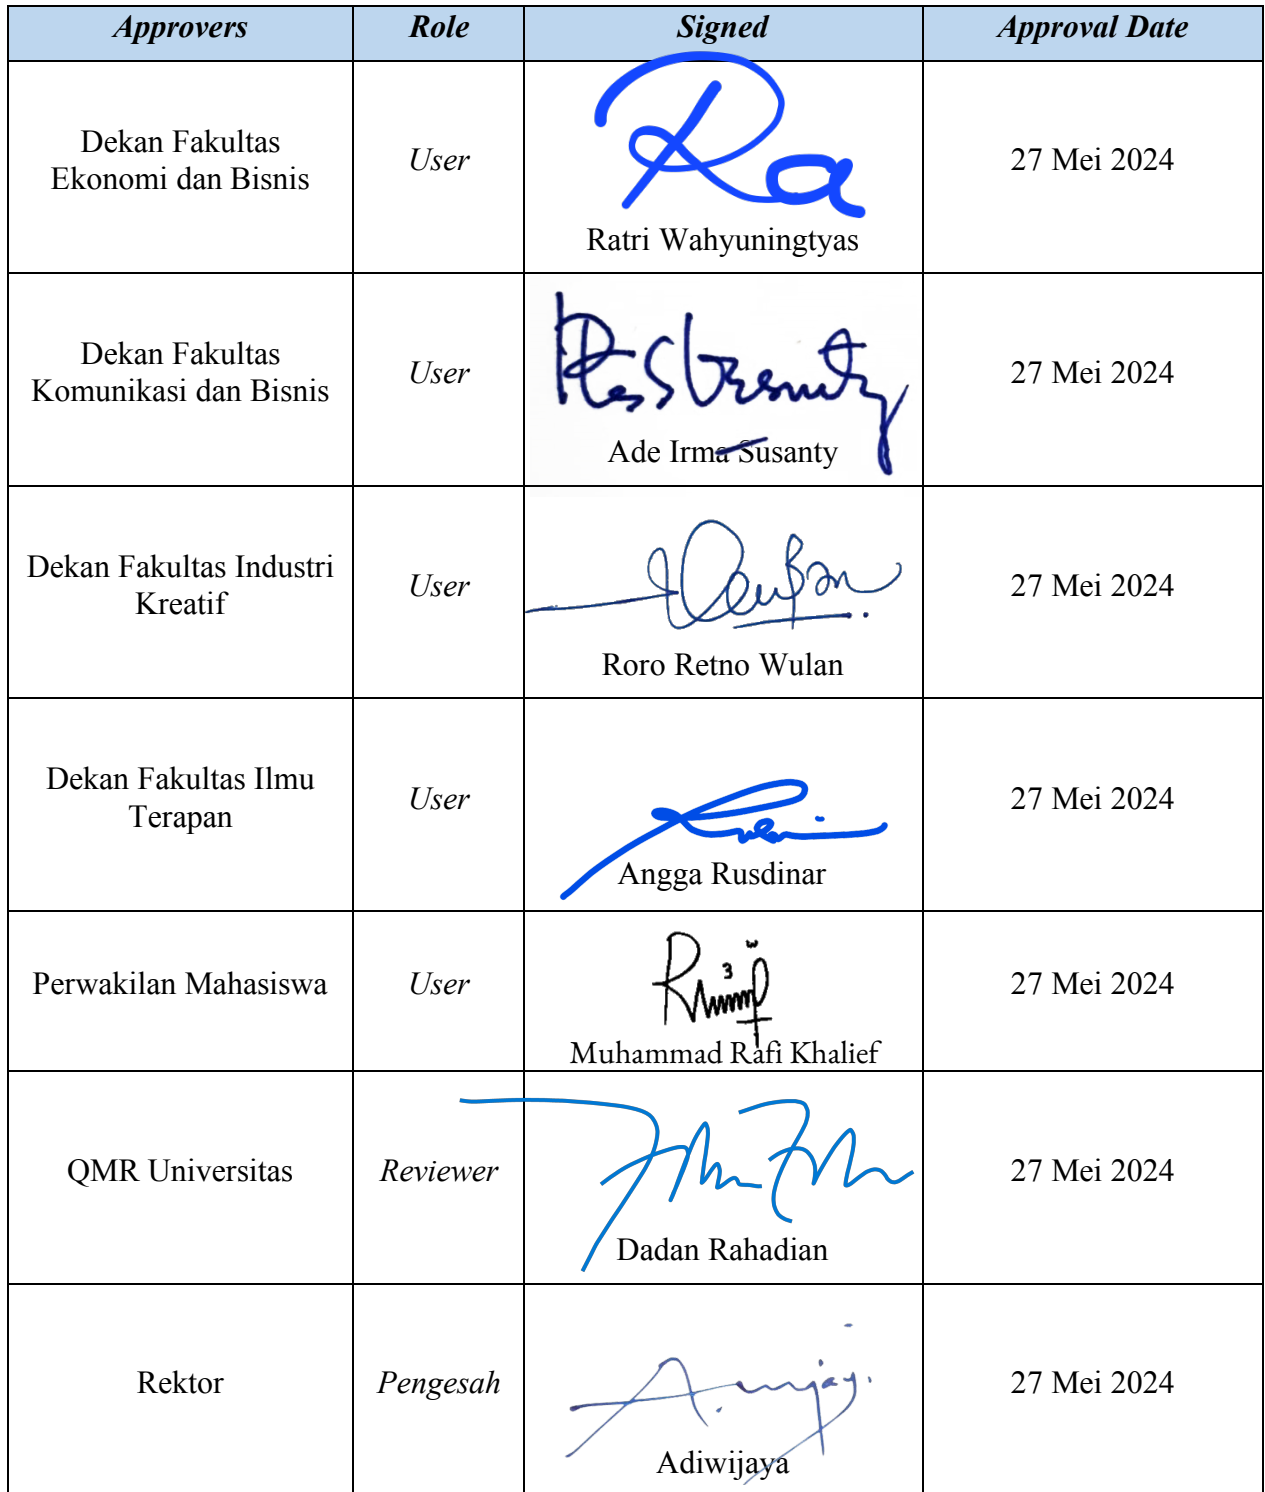 Approvers Role Signed Approval Date
Dekan Fakultas
Ekonomi dan Bisnis
User
Ratri Wahyuningtyas
27 Mei 2024
Dekan Fakultas
Komunikasi dan Bisnis
User
Ade Irma Susanty
27 Mei 2024
Dekan Fakultas Industri
Kreatif
User
Roro Retno Wulan
27 Mei 2024
Dekan Fakultas Ilmu
Terapan
User
Angga Rusdinar
27 Mei 2024
Perwakilan Mahasiswa
User
Muhammad Rafi Khalief
27 Mei 2024
QMR Universitas
Reviewer
Dadan Rahadian
27 Mei 2024
Rektor
Pengesah
Adiwijaya
27 Mei 2024